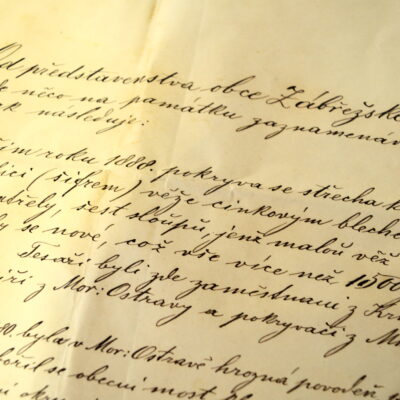 Od představenstva obce Zábřežské
něco na památku zaznamenáv
k následuje:
ším roku 1888. pokryva se střecha k
lici (šifrem) věže cinkovým blech
šest sloupů, jenž malou věž
by se nové, což vše více než 1500
Tesaři byli zde zaměstnaní z Kru
íři z Mor: Ostravy a pokryvači z M
80. byla v Mor: Ostravě hrozná povodeň
bořil se obecni most